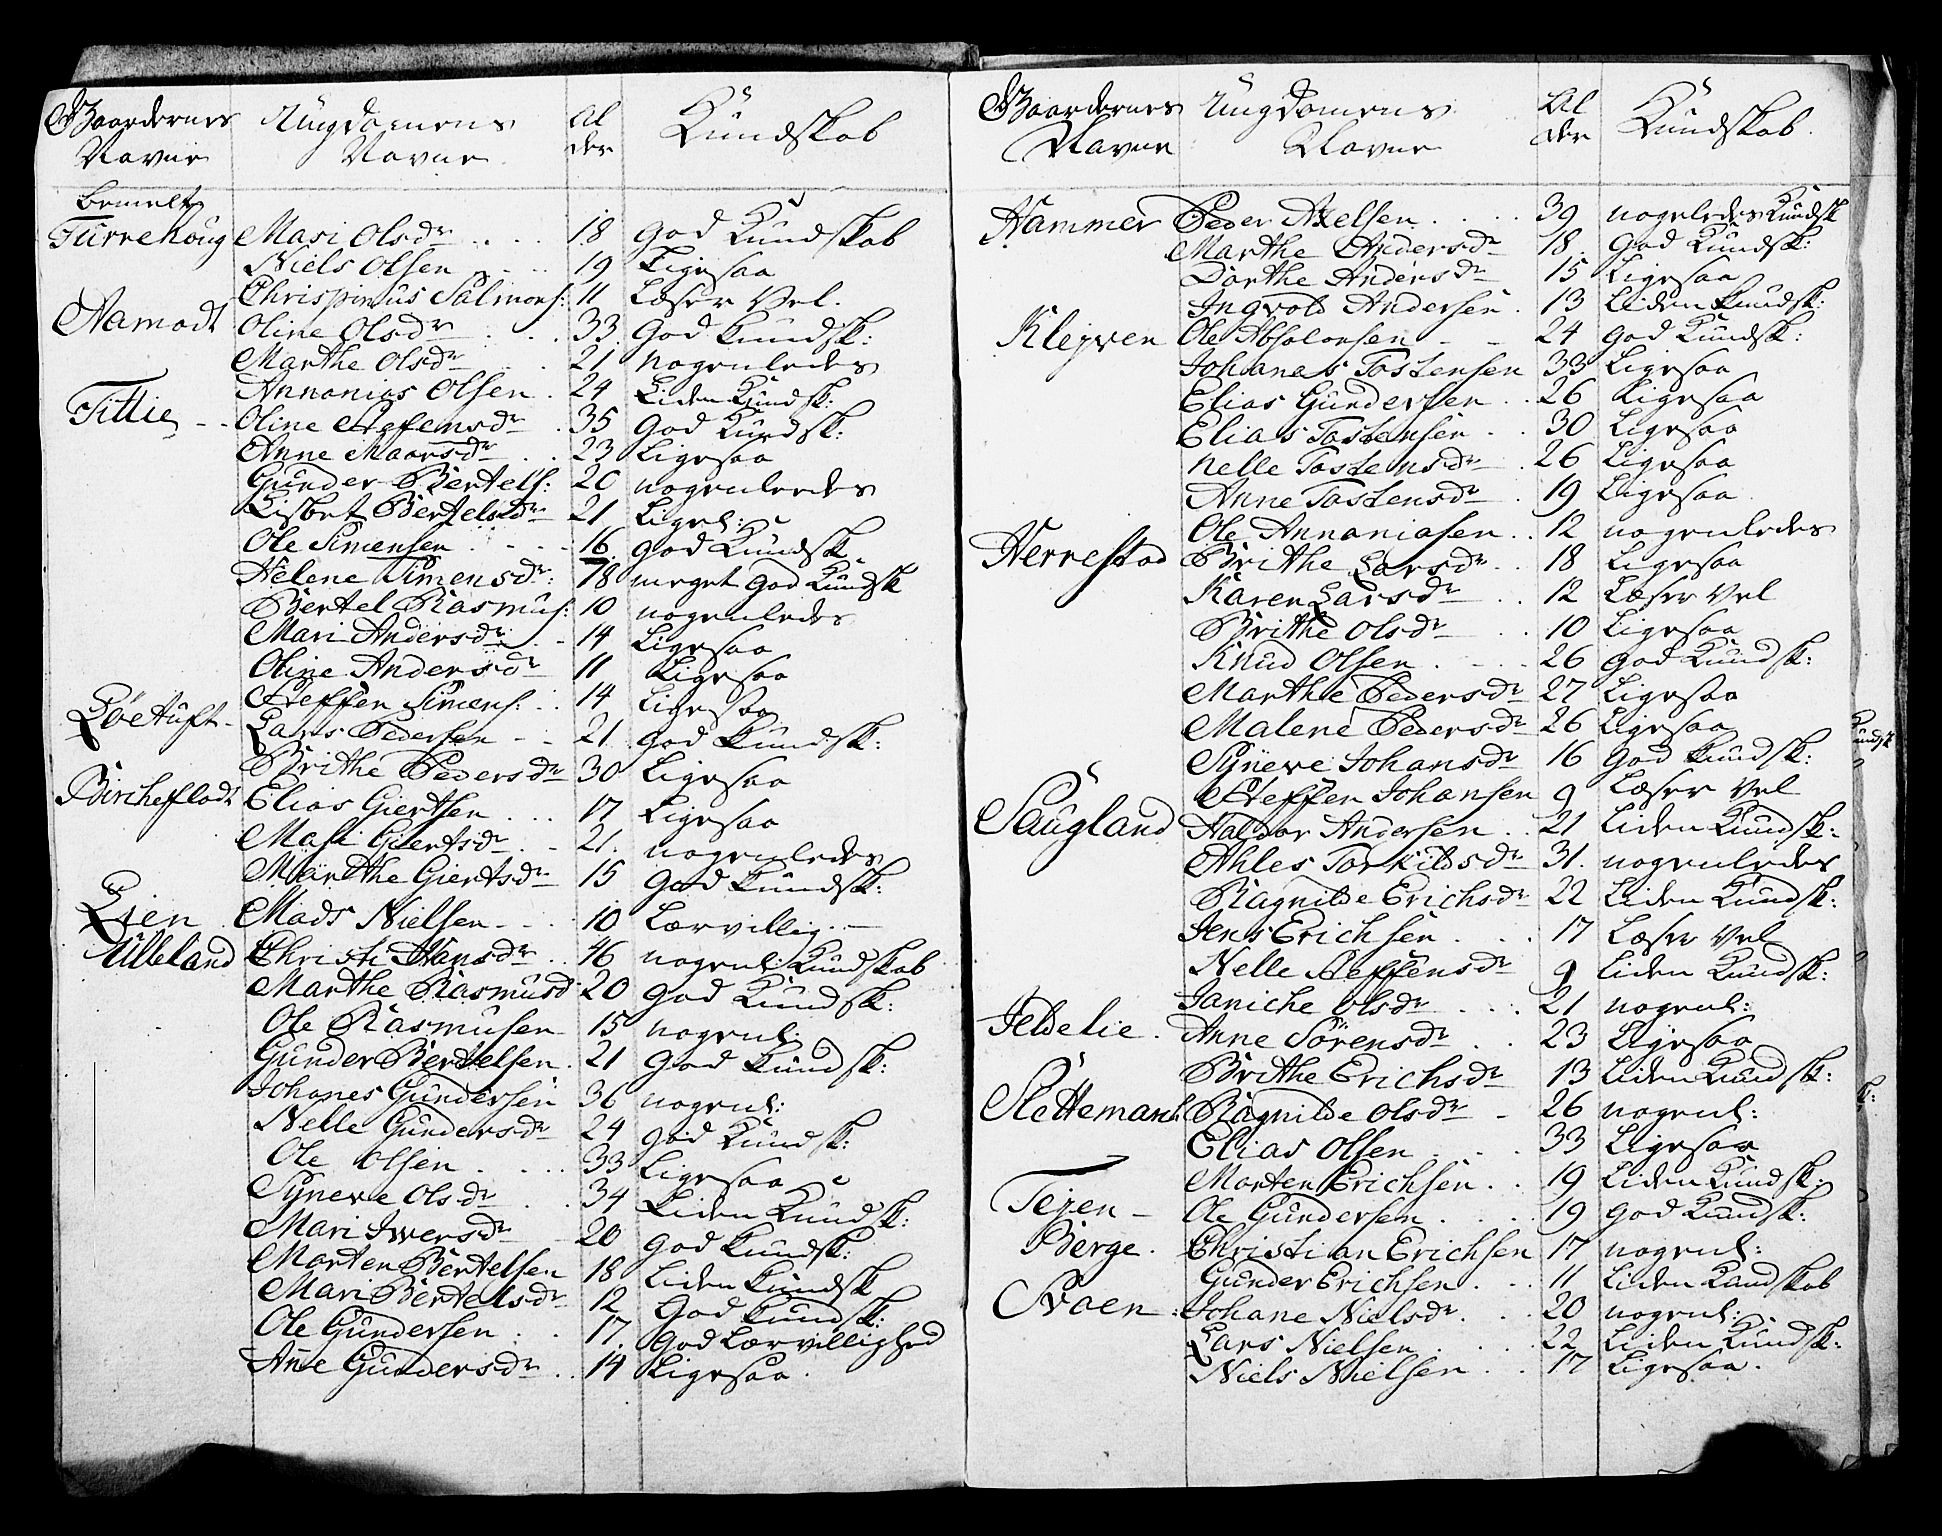 Gaardernes Navne Ungdomens Navne Alder Kundskab
bemelte
Turrehoug Mari Olsdr 18 God Kundskab
Niels Olsen 19 Ligesaa
Chrispinus Salmons: 11 Læser Vel.
Aamodt Oline Olsdr 33 God Kundsk:
Marthe Olsdr 21 nogenledes
Annanias Olsen 24 Liden Kundsk:
Tittie Oline Steffensdr 35 God Kundsk:
Anne Maarsdr 23 Ligesaa
Gunder Bertels: 20 nogenledes
Lisbet Bertelsdr 21 Ligel:
Ole Simensen 16 God Kundsk
Helene Simensdr: 18 meget God Kundsk
Bertel Rasmus: 10 nogenledes
Mari Andersdr 14 Ligesaa
Oline Andersdr 11 Ligesaa
Steffen Simens: 14 Ligesaa
Løetuft Lars Pedersen 21 God Kundsk:
Brithe Pedersdr 30 Ligesaa
Bircheflodt Elias Giertsen 17 Ligesaa
Mari Giertsdr 21. nogenledes
Marthe Giertsdr 15 God Kundsk:
Lien Mads Nielsen 10 Lærvillig.
Ulleland Christi Hansdr 46 nogenl: Kundskab
Marthe Rasmusd 20 God Kundsk:
Ole Rasmusen 15 nogenl:
Gunder Bertelsen 21 God Kundsk:
Johanes Gundersen 36 nogenl:
Nelle Gundersdr 24 God Kundsk:
Ole Olsen 33 Ligesaa
Syneve Olsdr 34 Liden Kundsk:
Mari Iversdr 20 God Kundsk:
Marten Bertelsen 18 Liden Kundsk
Mari Bertelsdr 12 God Kundsk:
Ole Gundersen 17. God Lærvillighed
Ane Gundersdr 14 Ligesaa.
Gaardernes Navne Ungdomens Navne Alder Kundskab.
Hammer Peder Axelsen 39 nogeledes Kundsk
Marthe Andersdr 18 God Kundsk:
Dorthe Andersdr 15 Ligesaa
Ingvold Andersen 13 Liden Kundsk:
Klejven Ole Absalonsen 24 God Kundsk:
Johanes Tostensen 33 Ligesaa
Elias Gundersen 26 Ligesaa
Elias Tostensen 30 Ligesaa
Nelle Tostensdr 26 Ligesaa
Anne Tostensdr 19 Ligesaa
Ole Annaniasen 12 nogenledes
Herrestad Brithe Larsdr 18 Ligesaa
Karen Larsdr 12 Læser Vel
Brithe Olsdr 10 Ligesaa
Knud Olsen 26 God Kundsk:
Marthe Pedersdr 27 Ligesaa
Malene Pedersdr 26 Ligesaa
Syneve Johansdr 16 God Kundsk:
Steffen Johansen 9 Læser Vel
Saugland Haldor Andersen 21 Liden Kundsk:
Ahles Torkildsdr 31. nogenledes
Ragnilde Erichsdr 22 Liden Kundsk:
Jens Erichsen 17 Læser Vel
Nelle Steffensdr 9 Liden Kundsk:
Janiche Olsdr 21 nogenl:
Jeldelie. Anne Sørensdr 23 Ligesaa
Brithe Erichsdr 13 Liden Kundsk:
Slettemark Ragnilde Olsdr 26 nogenl:
Elias Olsen 33 Ligesaa
Morten Erichsen 19 Liden Kundsk:
Teien Ole Gundersen 19 God Kundsk:
Berge. Christian Erichsen 17 nogenl:
Gunder Erichsen 11 Liden Kundskab
Svaen: Johane Nielsdr 20 nogenl:
Lars Nielsen 22 Liden Kundsk:
Niels Nielsen 17 Ligesaa.